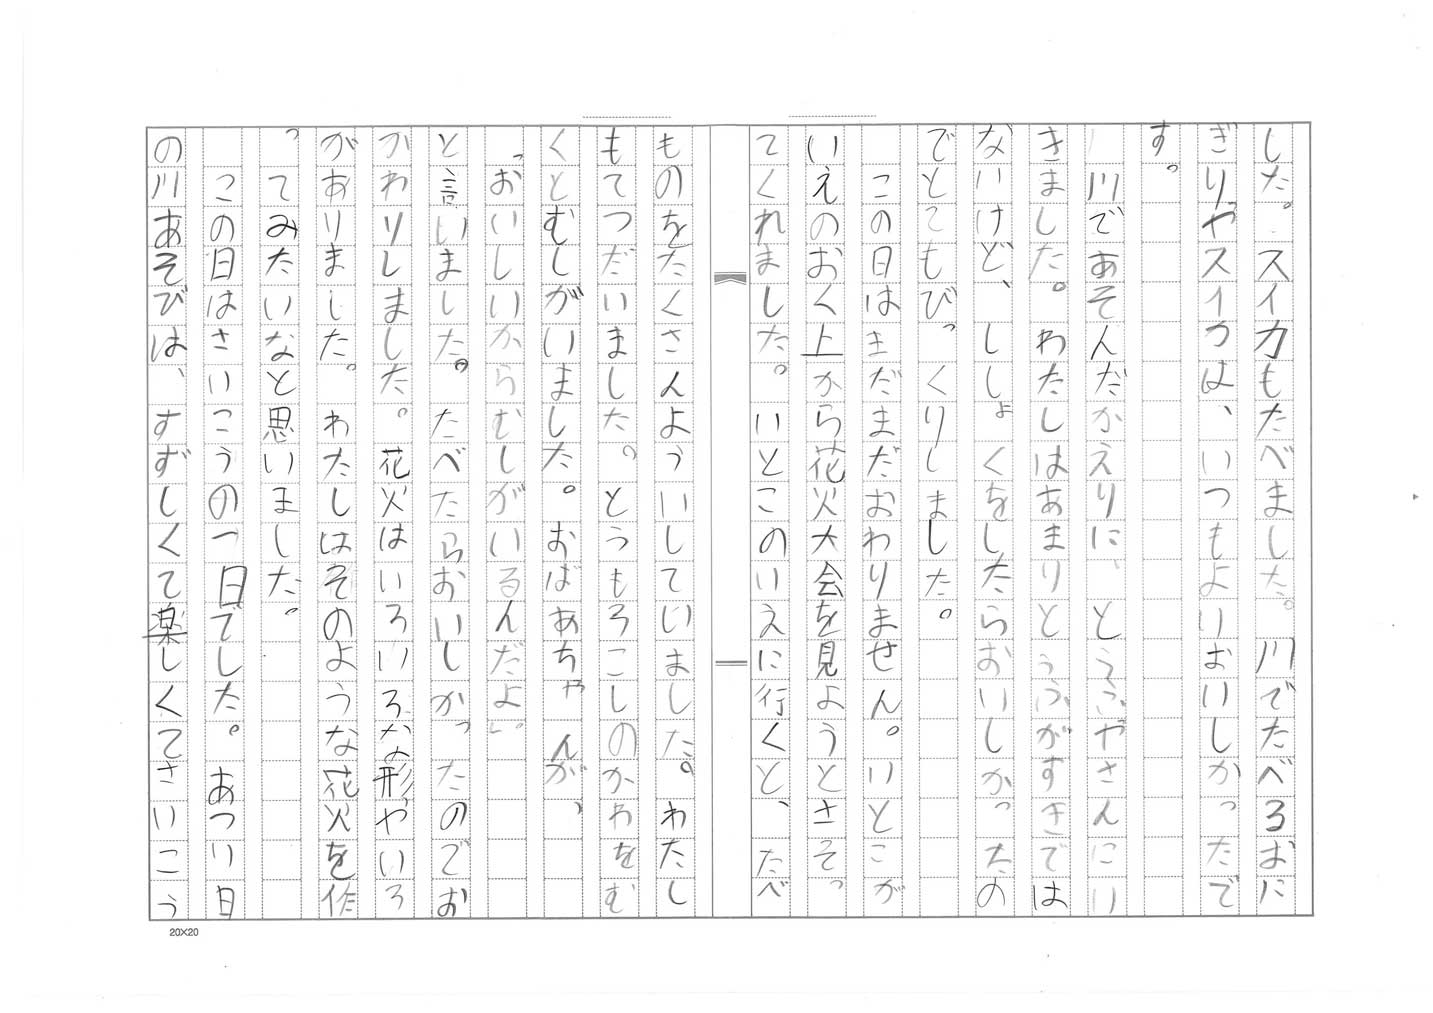 した。スイカもたべました。川でたべるおに
ぎりやスイカは、いつもよりおいしかったで
す。
川であそんだかえりに、とうふやさんにい
きました。わたしはあまりとうふがすきでは
ないけど、ししょくをしたらおいしかったの
でとてもびっくりしました。
この日はまだまだおわりません。いとこが
いえのおく上から花火大会を見ようとさそっ
てくれました。いとこのいえに行くと、たべ
ものをたくさんよういしていました。わたし
もてつだいました。とうもろこしのかわをむ
くとむしがいました。おばあちゃんが、
「おいしいからむしがいるんだよ。」
と言いました。たべたらおいしかったのでお
かわりしました。花火はいろいろな形やいろ
がありました。わたしはそのような花火を作
ってみたいなと思いました。
この日はさいこうの一日でした。あつい日
の川あそびは、すずしくて楽しくてさいこう
20×20